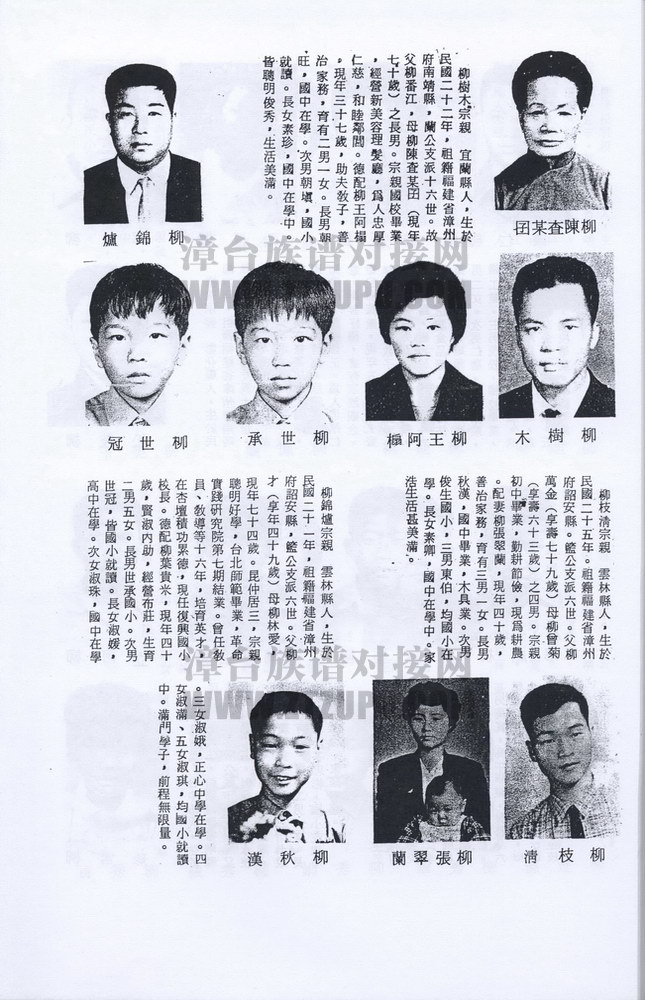 柳陳查某囝
柳樹木宗親　宜蘭縣人，生於
民國二十二年，祖籍福建省漳州
府南靖縣，蘭公支派十六世。故
父柳番江，母柳陳查某囝（現年
七十歲）之長男。宗親國校畢業
，經營新美容理髮廳，為人忠厚
仁慈，和睦鄰閭。德配柳王阿
，現年三十七歲，助夫教子，善
治家務，育有二男一女。長男朝
旺，國中在學。次男朝塡，國小
就讀。長女素珍，國中在學中。
皆聰明俊秀，生活美滿。
柳錦爐
柳樹木
柳王阿
柳世承
柳世冠
柳枝清宗親　雲林縣人，生於
民國二十五年。祖籍福建省漳州
府詔安縣。籃公支派六世。父柳
萬金（享壽七十九歲）母柳曾菊
（享壽六十三歲）之四男。宗親
初中畢業，勤耕節儉，現為耕農
。配妻柳張翠蘭，現年四十歲，
善治家務，育有三男一女。長男
秋漢，國中畢業，木具業。次男
俊生國小，三男東伯，均國小在
學。長女素卿，國中在學中。家
浩生活甚美滿。
柳錦爐宗親　雲林縣人，生於
民國二十一年，祖籍福建省漳州
府詔安縣，籃公支派六世。父柳
才（享年四十九歲）母柳林愛，
現年七十四歲。昆仲居三，宗親
聰明好學，台北師範畢業，革命
實踐研究院第七期結業。曾任教
員、教導等十六年，培育英才，
在杏壇積功累德，現任復興國小
校長。德配柳葉貴米，現年四十
歲，賢淑內助，經營布莊，生育
二男五女。長男世承國小。次男
世冠，皆國小就讀。長女淑媛，
高中在學。次女淑珠，國中在學
。三女淑娥，正心中學在學。四
女淑滿、五女淑琪，均國小就讀
中。滿門學子，前程無限量。
柳枝清
柳張翠蘭
柳秋漢
漳台族谱对接网
漳台族谱对接网